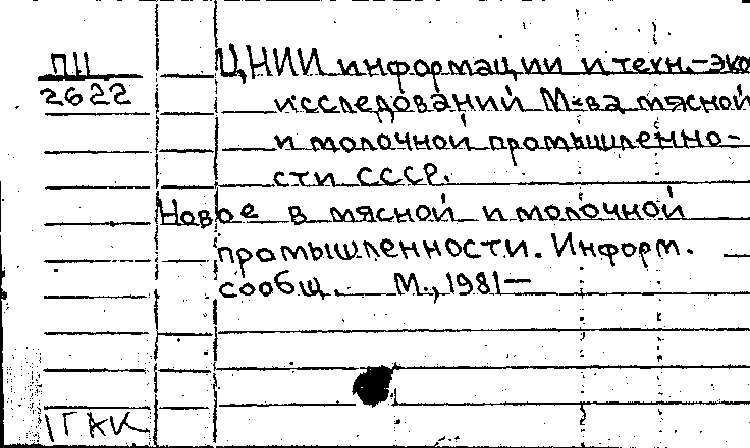 П11
2622
ЦНИИ информации и техн.-эко
исследований М-ва мясной
и молочной промышленно-
сти СССР.
Новое в мясной и молочной
промышленности. Информ.
сообщ. М., 1981—
ГАК